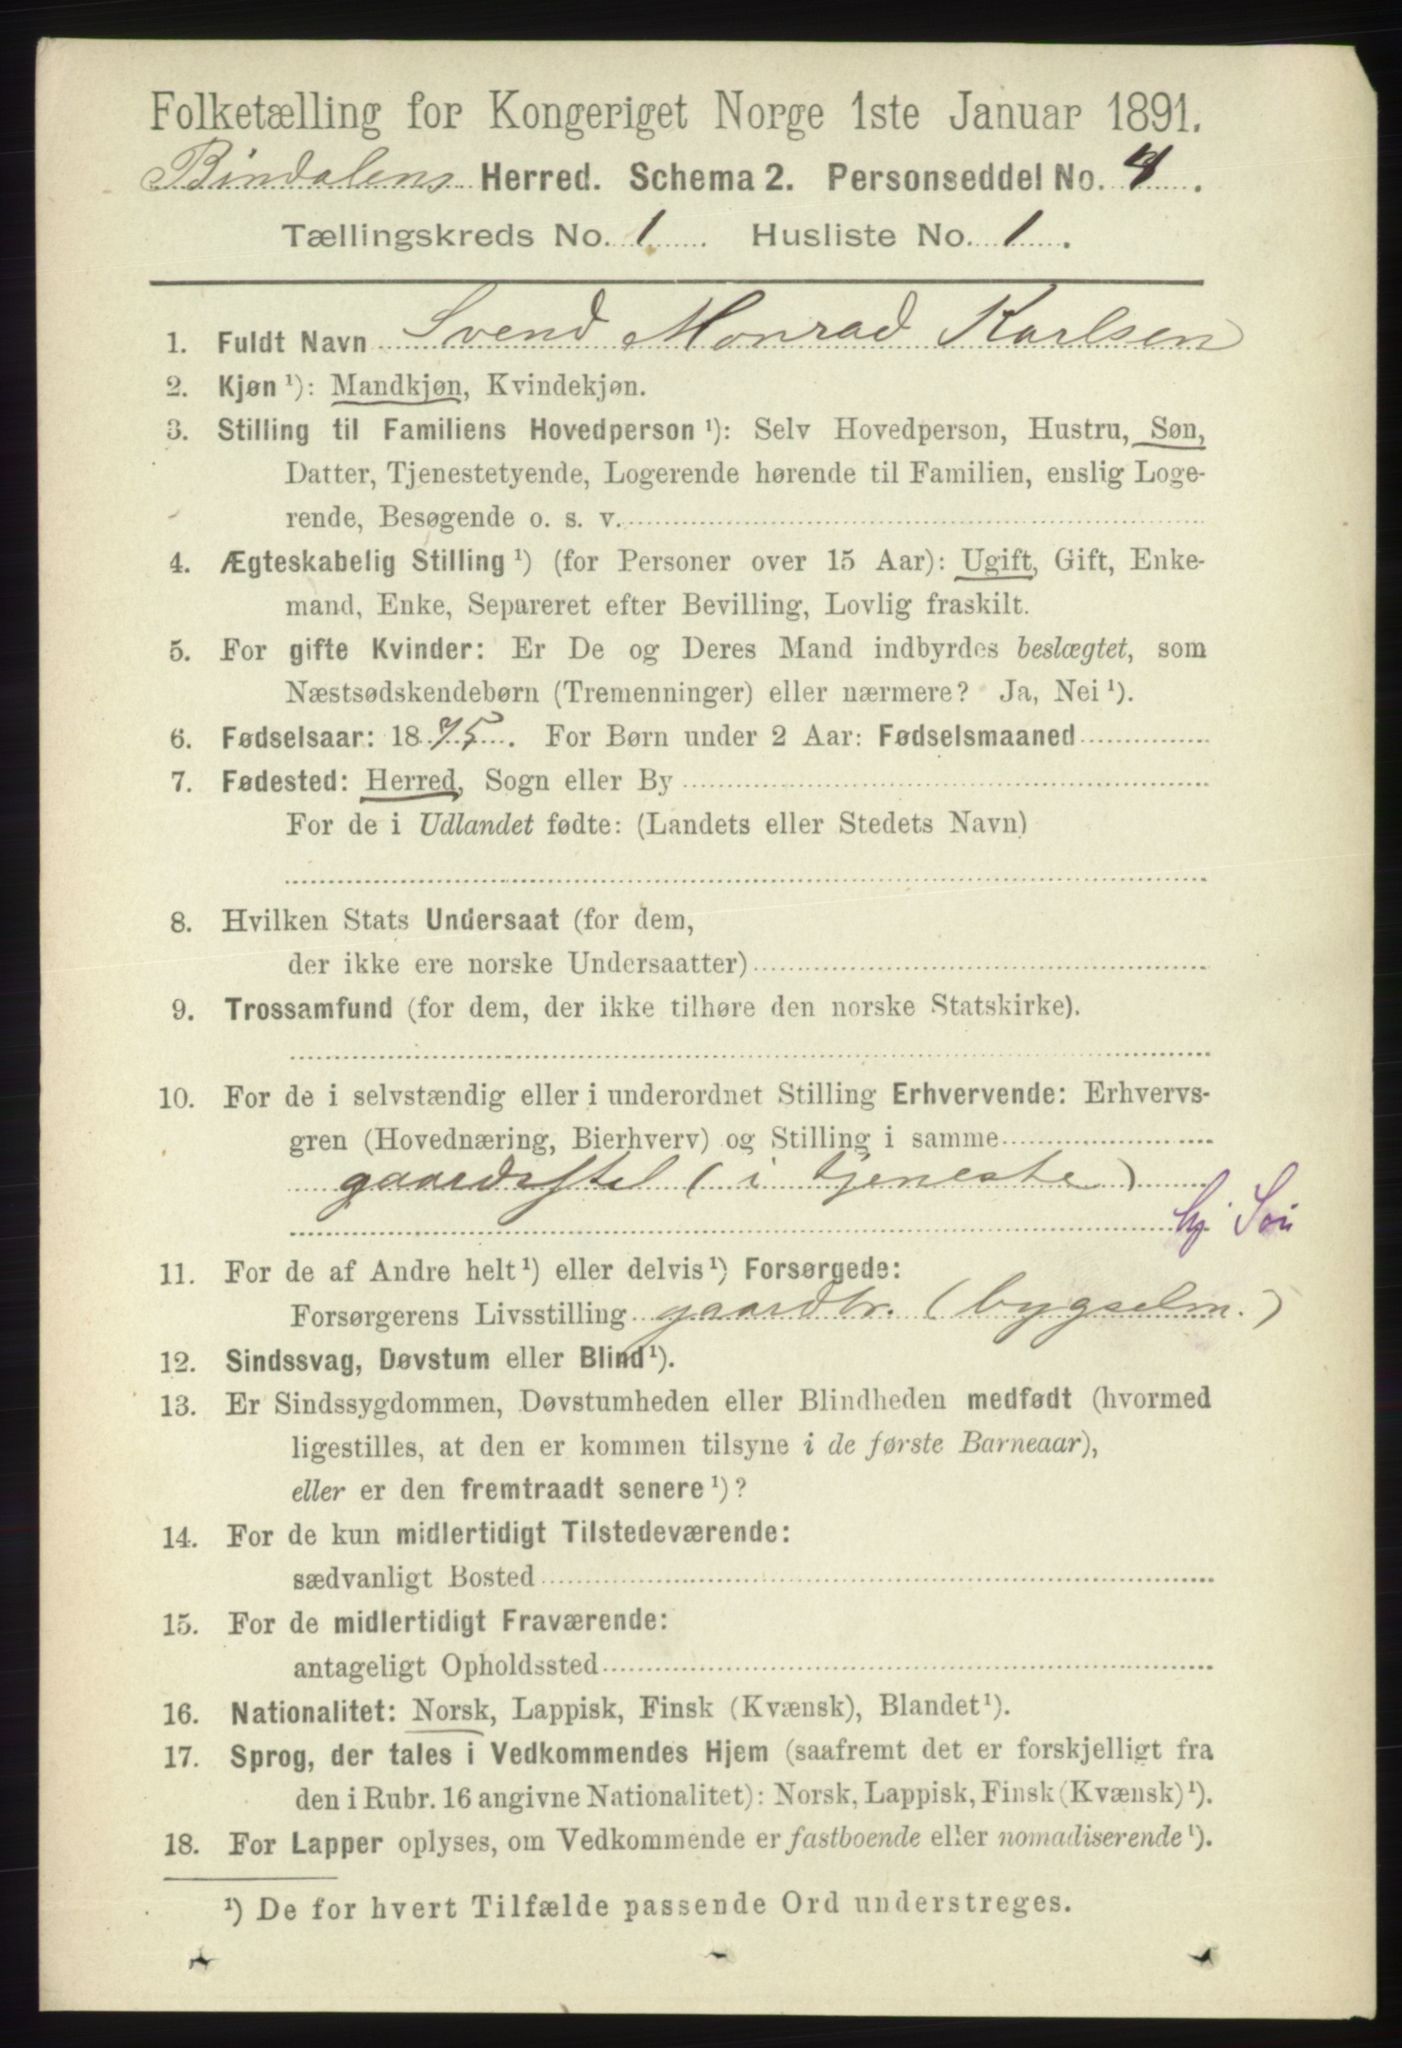 Folketælling for Kongeriget Norge 1ste Januar 1891.
Bindalens Herred. Schema 2. Personseddel No. 4.
Tællingskreds No. 1. Husliste No. 1.
1. Fuldt Navn Svend Monrad Karlsen
2. Kjøn ¹): Mandkjøn, Kvindekjøn.
3. Stilling til Familiens Hovedperson ¹): Selv Hovedperson, Hustru, Søn,
Datter, Tjenestetyende, Logerende hørende til Familien, enslig Loge-
rende, Besøgende o. s. v.
4. Ægteskabelig Stilling ¹) (for Personer over 15 Aar): Ugift, Gift, Enke-
mand, Enke, Separeret efter Bevilling, Lovlig fraskilt.
5. For gifte Kvinder: Er De og Deres Mand indbyrdes beslægtet, som
Næstsødskendebørn (Tremenninger) eller nærmere? Ja, Nei ¹).
6. Fødselsaar: 1875. For Børn under 2 Aar: Fødselsmaaned
7. Fødested: Herred, Sogn eller By
For de i Udlandet fødte: (Landets eller Stedets Navn)
8. Hvilken Stats Undersaat (for dem,
der ikke ere norske Undersaatter)
9. Trossamfund (for dem, der ikke tilhøre den norske Statskirke).
10. For de i selvstændig eller i underordnet Stilling Erhvervende: Erhvervs-
gren (Hovednæring, Bierhverv) og Stilling i samme
(i tjeneste)
hj. Søn
11. For de af Andre helt ¹) eller delvis ¹) Forsørgede:
Forsørgerens Livsstilling gaardbr. (bygselm.)
12. Sindssvag, Døvstum eller Blind ¹).
13. Er Sindssygdommen, Døvstumheden eller Blindheden medfødt (hvormed
ligestilles, at den er kommen tilsyne i de første Barneaar),
eller er den fremtraadt senere ¹)?
14. For de kun midlertidigt Tilstedeværende:
sædvanligt Bosted
15. For de midlertidigt Fraværende:
antageligt Opholdssted
16. Nationalitet: Norsk, Lappisk, Finsk (Kvænsk), Blandet ¹).
17. Sprog, der tales i Vedkommendes Hjem (saafremt det er forskjelligt fra
den i Rubr. 16 angivne Nationalitet): Norsk, Lappisk, Finsk (Kvænsk) ¹).
18. For Lapper oplyses, om Vedkommende er fastboende eller nomadiserende ¹).
¹) De for hvert Tilfælde passende Ord understreges.